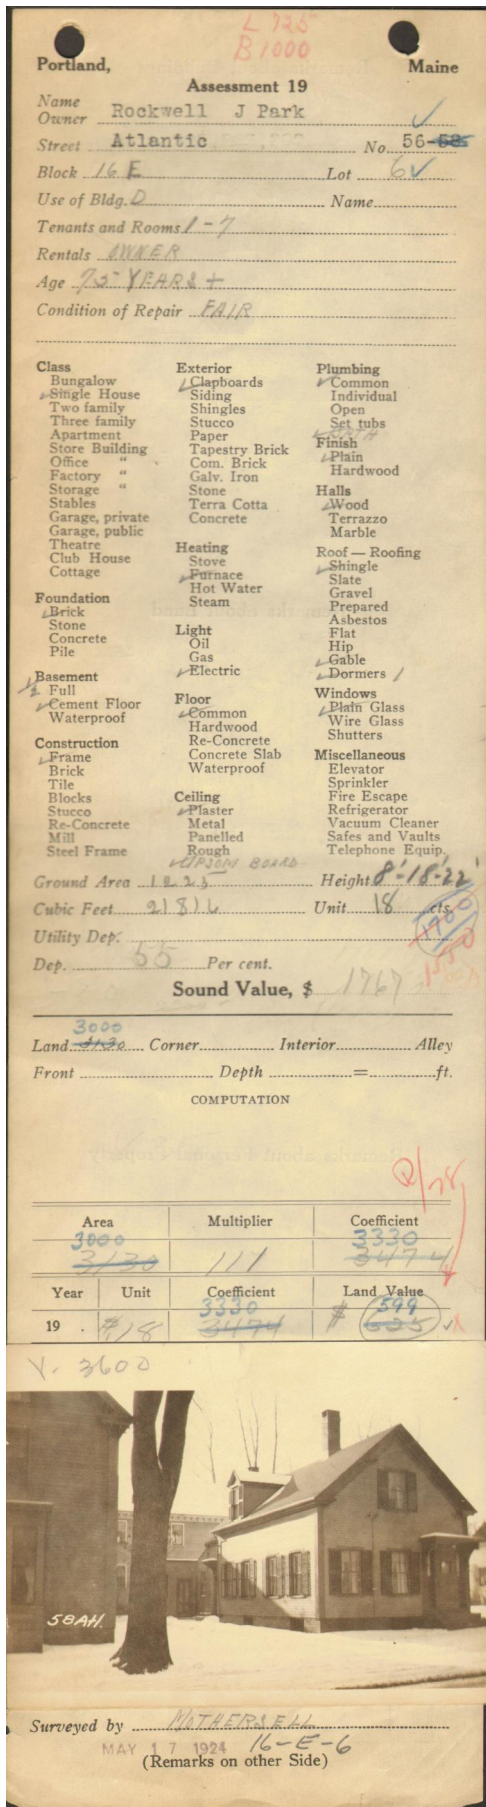 L 725
B 1000
Portland, Maine
Assessment 19
Name
Owner Rockwell J Park
Street Atlantic No. 56-58
Block 16 E Lot 6
Use of Bldg. D Name
Tenants and Rooms 1-7
Rentals OWNER
Age 75 YEARS +
Condition of Repair FAIR
Class
Bungalow
Single House
Two family
Three family
Apartment
Store Building
Office "
Factory "
Storage "
Stables
Garage, private
Garage, public
Theatre
Club House
Cottage
Foundation
Brick
Stone
Concrete
Pile
Basement
1/2 Full
Cement Floor
Waterproof
Construction
Frame
Brick
Tile
Blocks
Stucco
Re-Concrete
Mill
Steel Frame
Exterior
Clapboards
Siding
Shingles
Stucco
Paper
Tapestry Brick
Com. Brick
Galv. Iron
Stone
Terra Cotta
Concrete
Heating
Stove
Furnace
Hot Water
Steam
Light
Oil
Gas
Electric
Floor
Common
Hardwood
Re-Concrete
Concrete Slab
Waterproof
Ceiling
Plaster
Metal
Panelled
Rough
UPSOM BOARD
Plumbing
Common
Individual
Open
Set tubs
BATH
Finish
Plain
Hardwood
Halls
Wood
Terrazzo
Marble
Roof — Roofing
Shingle
Slate
Gravel
Prepared
Asbestos
Flat
Hip
Gable
Dormers 1
Windows
Plain Glass
Wire Glass
Shutters
Miscellaneous
Elevator
Sprinkler
Fire Escape
Refrigerator
Vacuum Cleaner
Safes and Vaults
Telephone Equip.
Ground Area 1225 Height 8'-18'-22'
Cubic Feet 21816 Unit 18 cts.
1700
Utility Dep.
1550
Dep. 55 Per cent.
Sound Value, $ 1767
3000
Land 3130 Corner Interior Alley
Front Depth = ft.
COMPUTATION
Area Multiplier Coefficient
3000 3330
3130 111 3474
Year Unit Coefficient Land Value
3330 599
19 . $.18 3474 $ 625
V. 3600
58AH.
Surveyed by MOTHERSELL
MAY 17 1924 16-E-6
(Remarks on other Side)